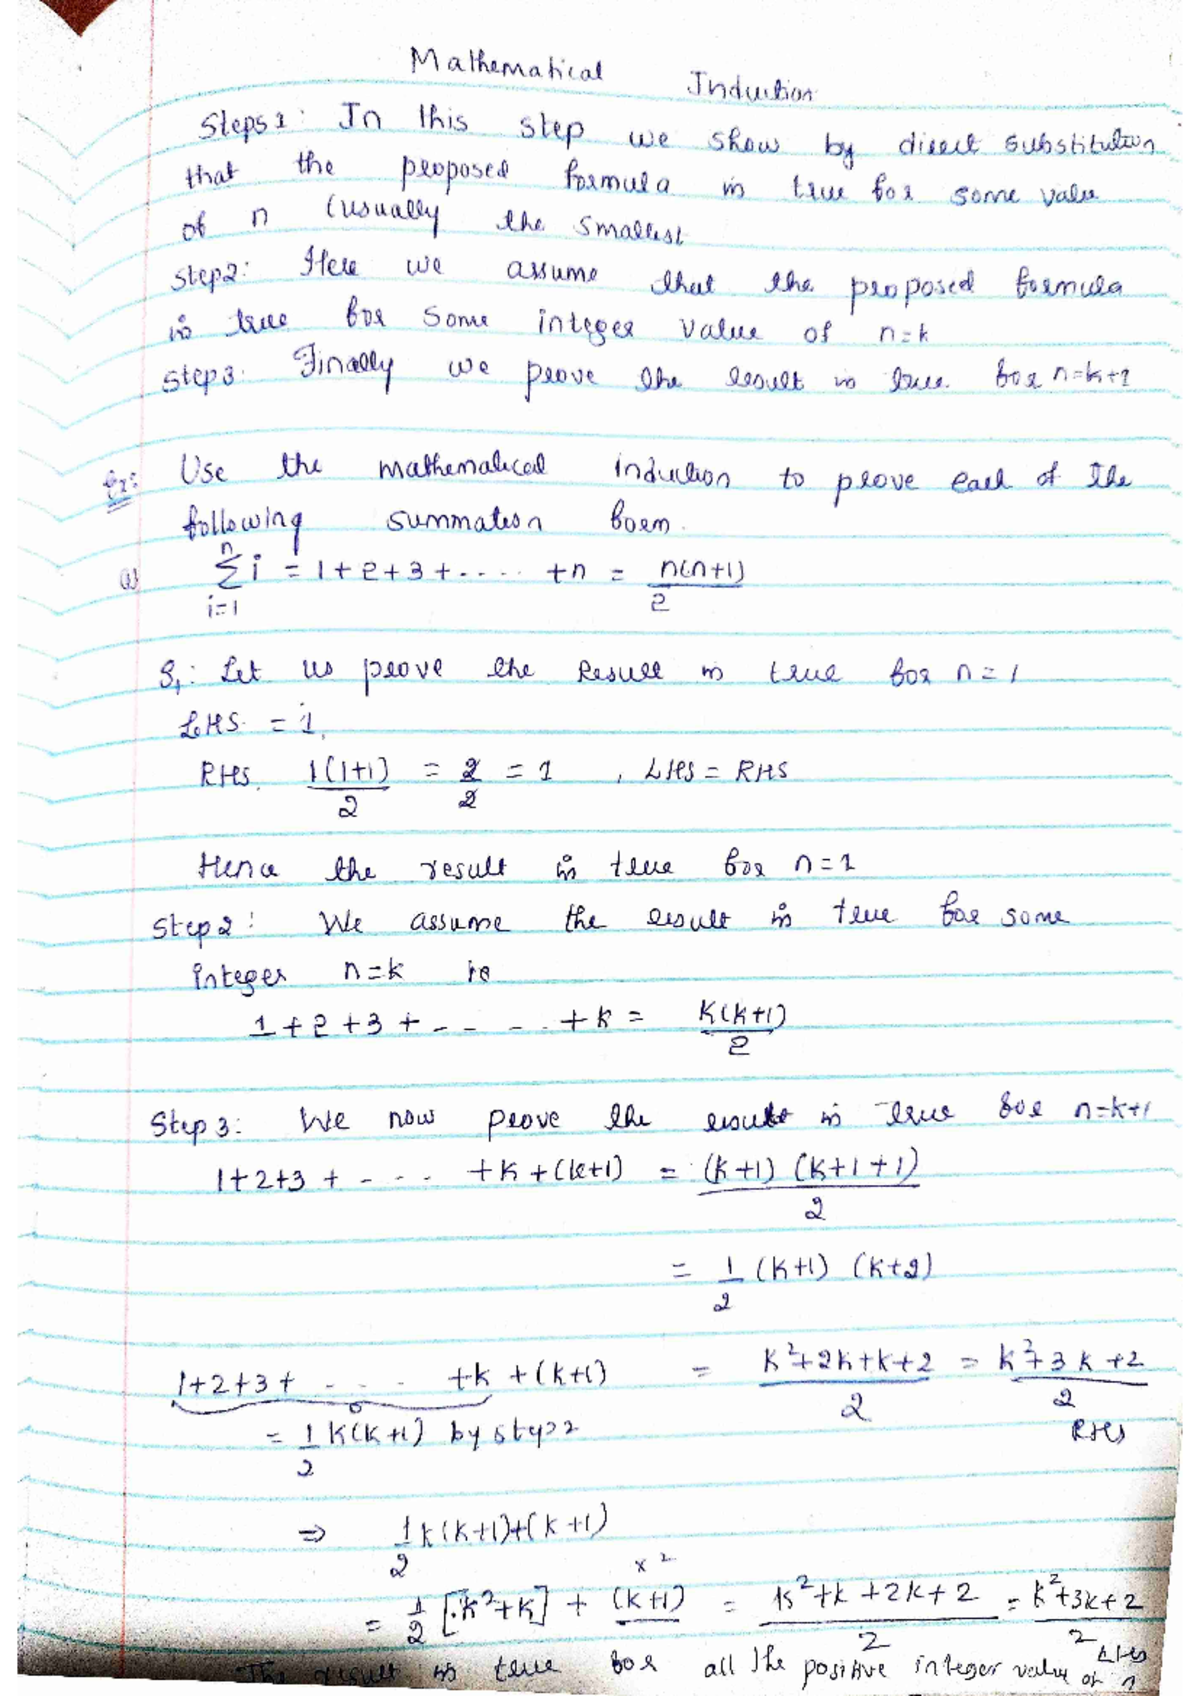 Mathematical Induction
Steps 1: In this step we show by direct substitution
that the proposed formula is true for some value
of n (usually the smallest
Step2: Here we assume that the proposed formula
is true for some integer value of n=k
Step3. Finally we prove the result is true for n=k+1
Ex: Use the mathematical induction to prove each of the
following summation form.
(a) n∑i=1 i = 1+2+3+.... +n = n(n+1)/2
S1: Let us prove the Result is true for n=1
LHS = 1,
RHS. 1(1+1)/2 = 2/2 = 1 , LHS = RHS
Hence the result is true for n=1
Step2: We assume the result is true for some
integer n=k ie
1+2+3+ - - - .. +k = k(k+1)/2
Step 3: We now prove the result is true for n=k+1
1+2+3+ - - - .. +k+(k+1) = (k+1) (k+1+1)/2
= 1/2 (k+1) (k+2)
1+2+3+ - - - - +k +(k+1) = k²+2k+k+2/2 = k²+3k+2/2
= 1/2 k(k+1) by step2 RHS
⇒ 1/2 k(k+1)+(k+1)
x 2
= 1/2 [k²+k] + (k+1) = k²+k+2k+2/2 = k²+3k+2/2
LHS
The result is true for all the positive integer value of n